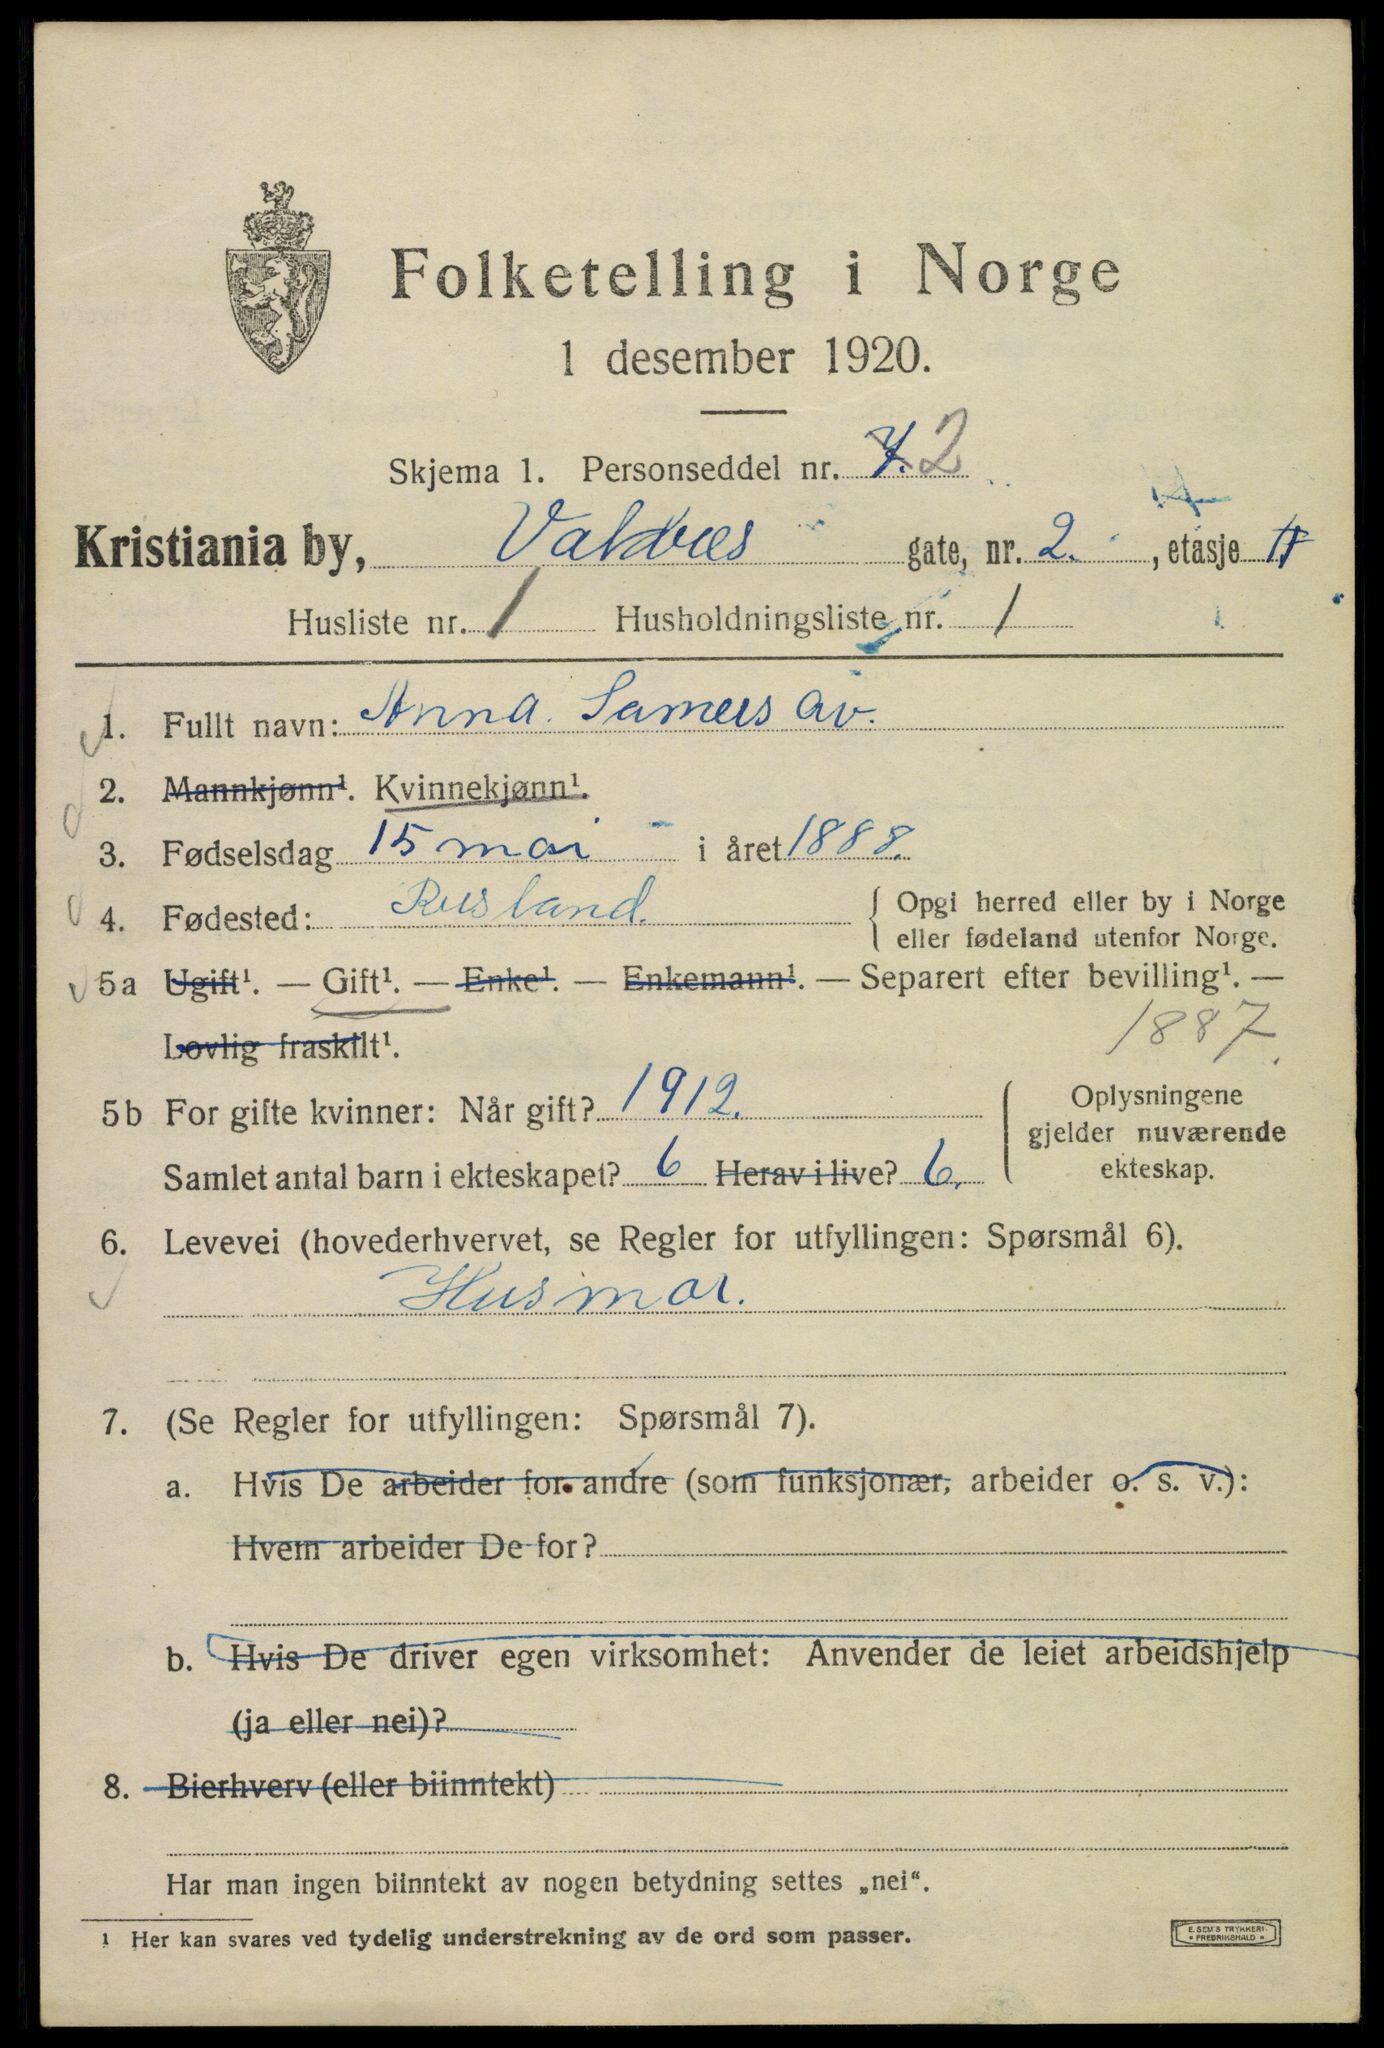 Folketelling i Norge
1 desember 1920.
Skjema 1. Personseddel nr. 2
Kristiania by, Valdres gate, nr. 2. , etasje
Husliste nr. 1 Husholdningsliste nr. 1
1. Fullt navn: Anna.
2. Mannkjønn¹. Kvinnekjønn¹.
3. Fødselsdag 15 mai i året 1888.
4. Fødested: Rusland. { Opgi herred eller by i Norge
eller fødeland utenfor Norge.
5a Ugift¹. — Gift¹. — Enke¹. — Enkemann¹. — Separert efter bevilling¹. —
Lovlig fraskilt¹. 1887.
5b For gifte kvinner: Når gift? 1912. { Oplysningene
gjelder nuværende
Samlet antal barn i ekteskapet? 6 Herav i live? 6. ekteskap.
6. Levevei (hovederhvervet, se Regler for utfyllingen: Spørsmål 6).
Husmor.
7. (Se Regler for utfyllingen: Spørsmål 7).
a. Hvis De arbeider for andre (som funksjonær, arbeider o. s. v.):
Hvem arbeider De for?
b. Hvis De driver egen virksomhet: Anvender de leiet arbeidshjelp
(ja eller nei)?
8. Bierhverv (eller biinntekt)
Har man ingen biinntekt av nogen betydning settes „nei“.
1 Her kan svares ved tydelig understrekning av de ord som passer.
E. SEM'S TRYKKERI
• FREDRIKSHALD •